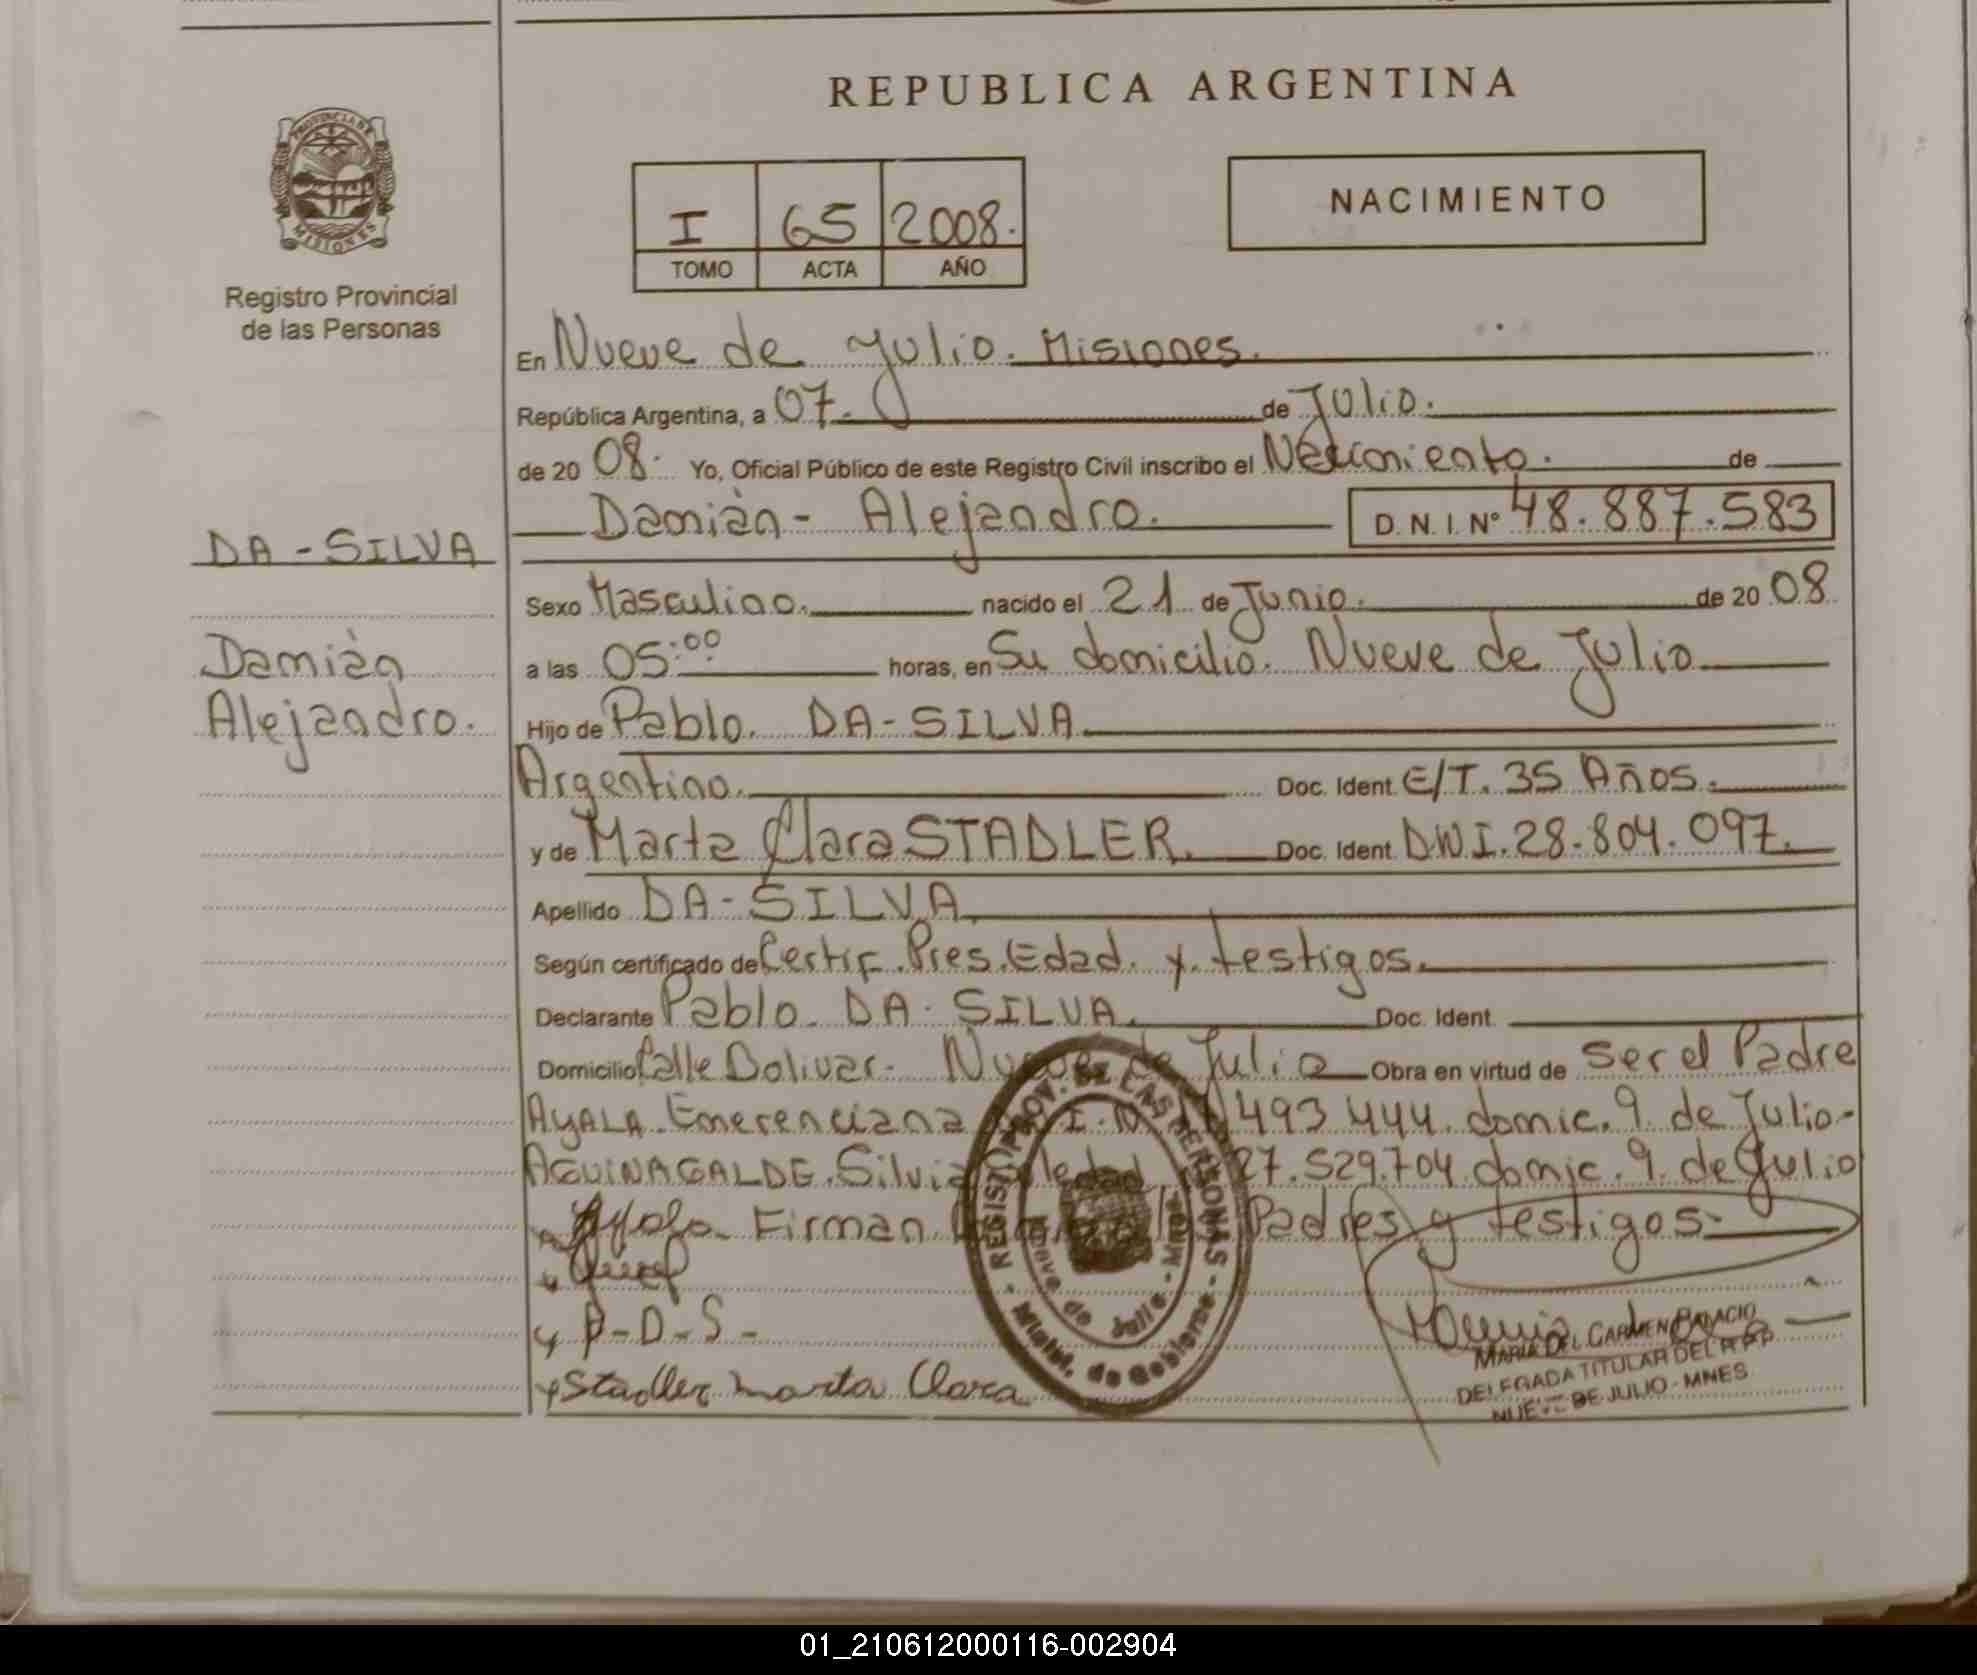 REPUBLICA ARGENTINA
PROVINCIA DE
MISIONES
Registro Provincial
de las Personas
I 65 2008.
TOMO ACTA AÑO
NACIMIENTO
En Nueve de Julio. Misiones.
República Argentina, a 07. de Julio.
de 20 08. Yo, Oficial Público de este Registro Civil inscribo el Nacimiento. de
Damián - Alejandro. D. N. I. Nº 48.887.583
DA - SILVA
Sexo Masculino. nacido el 21 de Junio. de 20 08
Damián
a las 05:00 horas, en Su domicilio. Nueve de Julio
Alejandro.
Hijo de Pablo. DA-SILVA
Argentino. Doc. Ident. E/T. 35 Años.
y de Marta Clara STADLER. Doc. Ident. DNI. 28.804.097.
Apellido DA-SILVA.
Según certificado de Certif. Pres. Edad. y testigos.
Declarante Pablo. DA-SILVA. Doc. Ident.
Domicilio Calle Bolivar- Nueve de Julio Obra en virtud de Ser el Padre
AYALA. Emerenciana 493 444. domic. 9. de Julio-
AGUINAGALDE. Silvia 27.529.704 domic. 9. de Julio
Firman Padres y testigos-
REGISTRO PROV. DE LAS PERSONAS - Minist. de Gobierno -
Nueve de Julio - Mnes
P-D-S-
Stadler Marta Clara
MARIA DEL CARMEN PALACIO
DELEGADA TITULAR DEL R.P.P
NUEVE DE JULIO - MNES
01_210612000116-002904